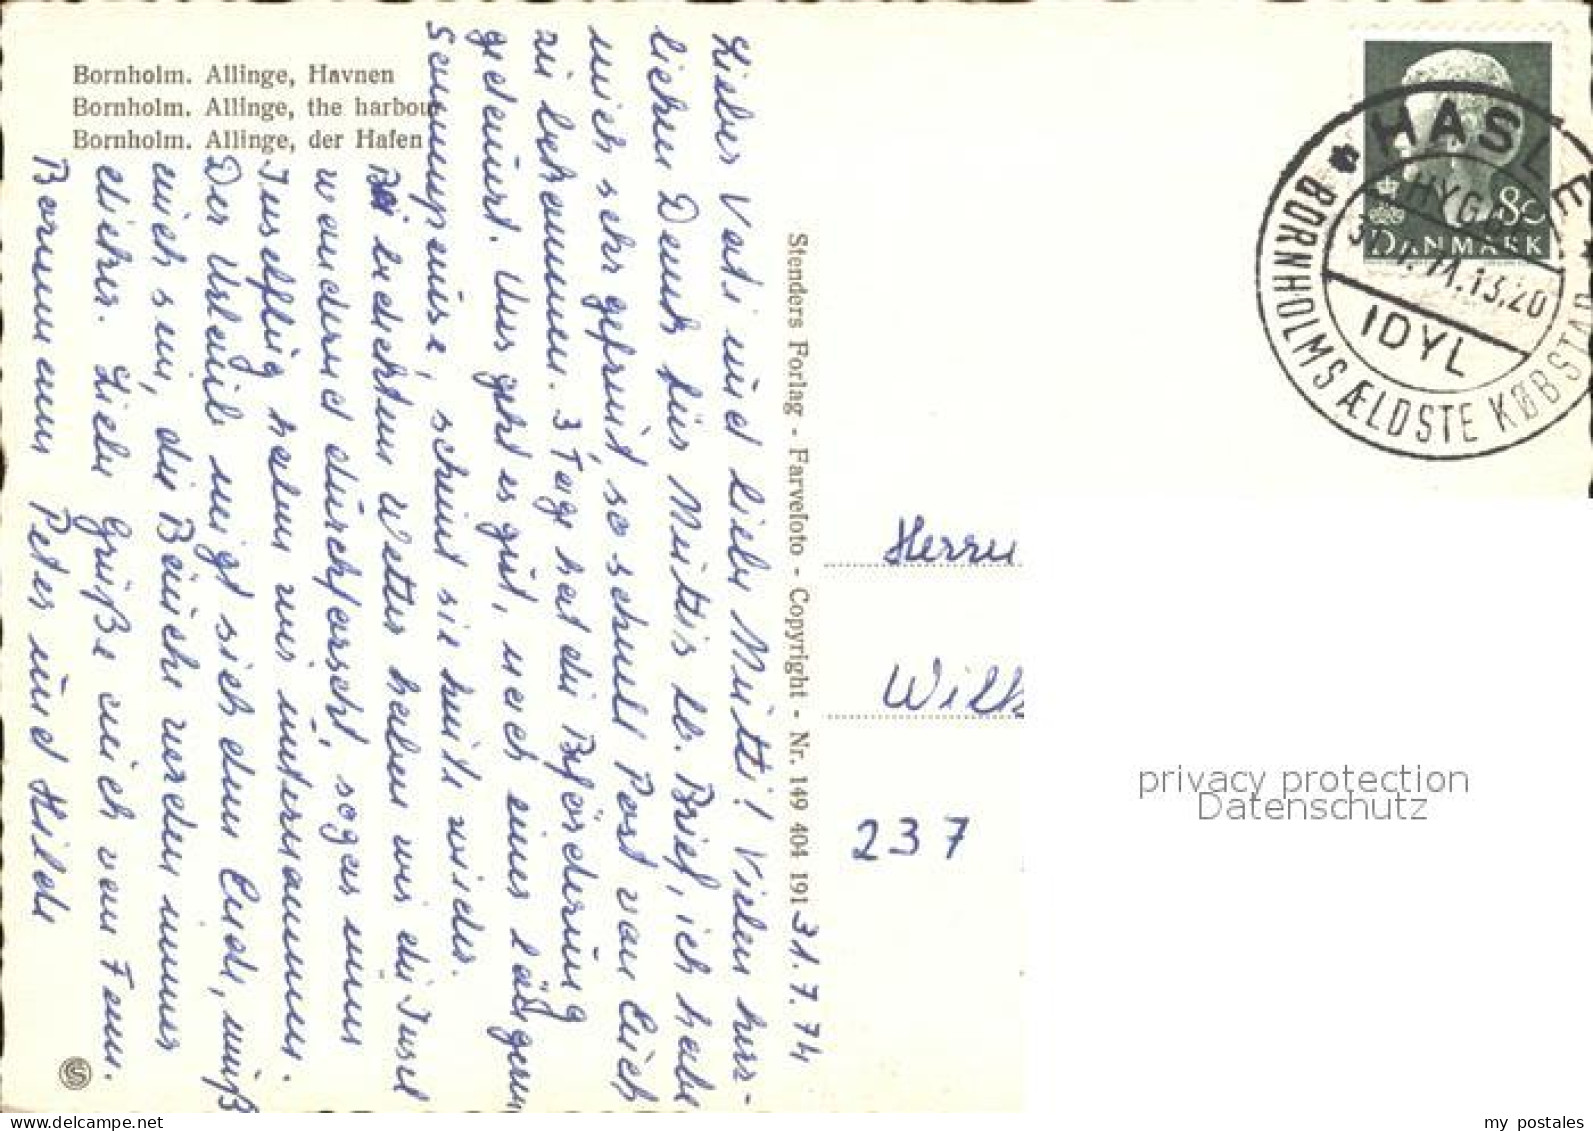 Bornholm. Allinge, Havnen
Bornholm. Allinge, the harbour
Bornholm. Allinge, der Hafen
31.7.74
Lieber Vati und liebe Mutti! Vielen herz-
lichen Dank für Muttis lb. Brief, ich habe
mich sehr gefreut so schnell Post von Euch
zu bekommen. 3 Tage hat die Beförderung
gedauert. Uns geht es gut, nach einer längeren
Sonnenpause, scheint sie heute wieder.
Bei bedecktem Wetter haben wir die Insel
wandernd durchforscht, sogar einen
Inselflug haben wir unternommen.
Der Urlaub neigt sich dem Ende, muß
auch sein, die Bäuche werden immer
dicker. Liebe Grüße auch von Fam.
Bormann Peter und Hilde
Stenders Forlag - Farvefoto - Copyright - Nr. 149 404 191
80
DANMARK
HASLE
HYGGE
31.7.74.13.20
IDYL
BORNHOLMS ÆLDSTE KØBSTAD
Herrn
Wilh
237
privacy protection
Datenschutz
my postales